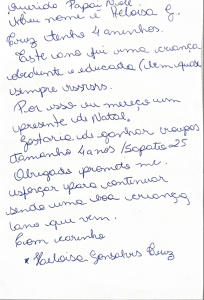 Querido Papai Noel.
Meu nome é Heloisa G.
Cruz tenho 4 aninhos.
Este ano fui uma criança
obediente e educada (bem quase
sempre rsrsrs.
Por isso eu mereço um
presente de Natal.
Gostaria de ganhar roupas
tamanho 4 anos / Sapato 25
Obrigada prometo me
esforçar para continuar
sendo uma boa criança
ano que vem.
Com carinho
* Heloisa Gonsalves Cruz